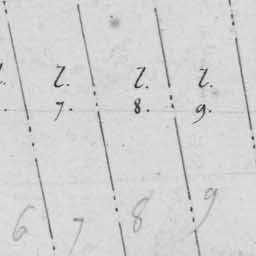 l. l. l. l.
7. 8. 9.
6 7 8 9